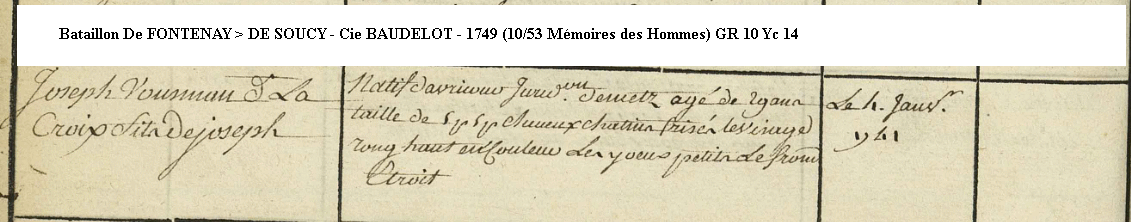 Bataillon De FONTENAY > DE SOUCY - Cie BAUDELOT - 1749 (10/53 Mémoires des Hommes) GR 10 Yc 14
Joseph Vousman d. La
Croix fils De joseph
Natif davricour Juridon Demetz agé de 29 ans
taille de 5 p 5 p cheveux chatins frisés le visage
rong haut en Couleur Les yoeux petits Le front
Etroit
Le 4. Janvr.
1741